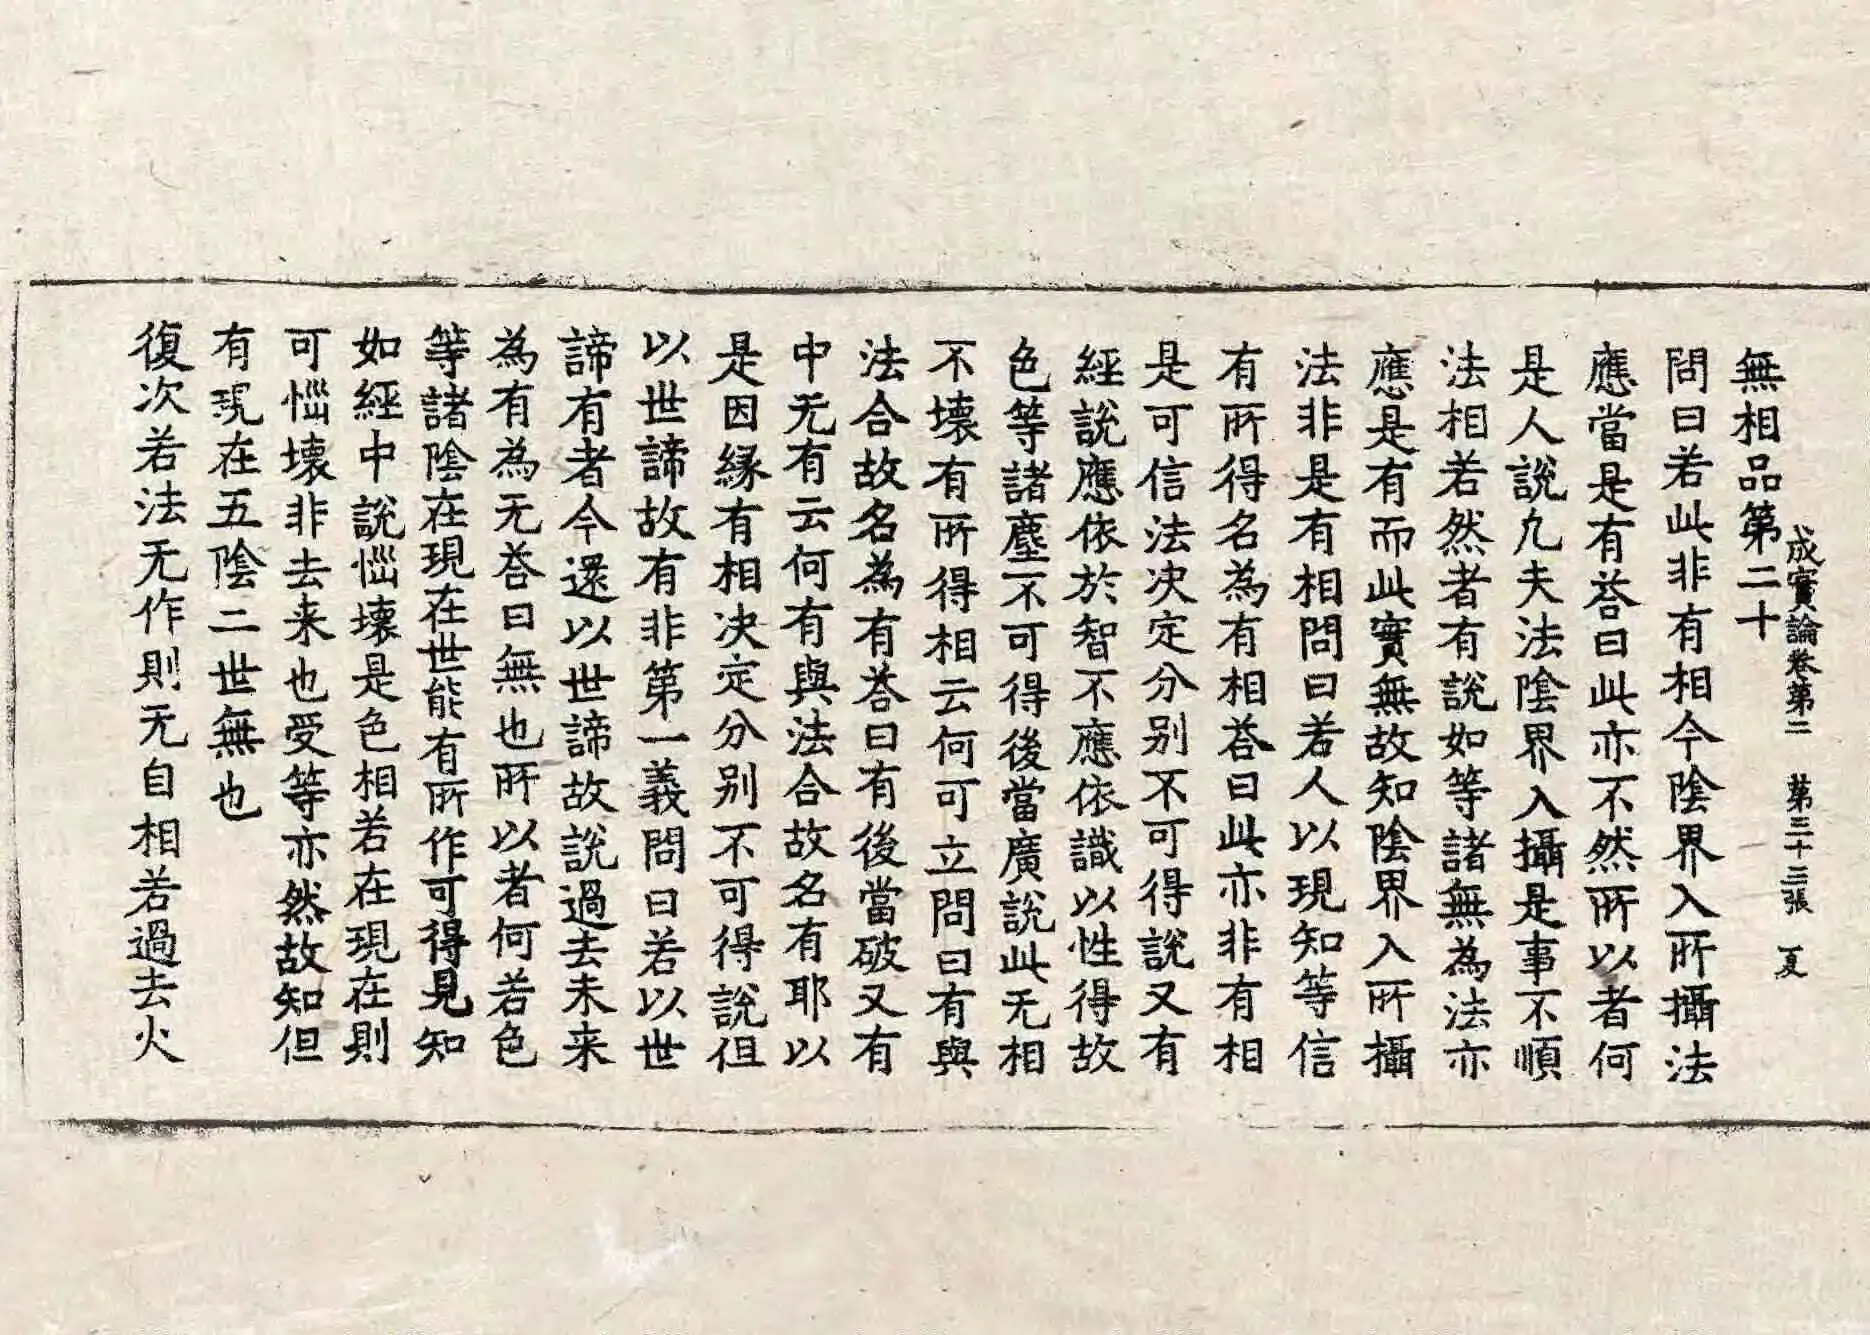 成實論卷第二　第三十三張　夏
無相品第二十
問曰若此非有相今陰界入所攝法
應當是有荅曰此亦不然所以者何
是人說凡夫法陰界入攝是事不順
法相若然者有說如等諸無為法亦
應是有而此實無故知陰界入所攝
法非是有相問曰若人以現知等信
有所得名為有相荅曰此亦非有相
是可信法决定分别不可得說又有
經說應依於智不應依識以性得故
色等諸塵不可得後當廣說此无相
不壊有所得相云何可立問曰有與
法合故名為有荅曰有後當破又有
中无有云何有與法合故名有耶以
是因縁有相决定分别不可得說但
以世諦故有非第一義問曰若以世
諦有者今還以世諦故說過去未来
為有為无荅曰無也所以者何若色
等諸陰在現在世能有所作可得見知
如經中說惱壊是色相若在現在則
可惱壊非去来也受等亦然故知但
有現在五陰二世無也
復次若法无作則无自相若過去火